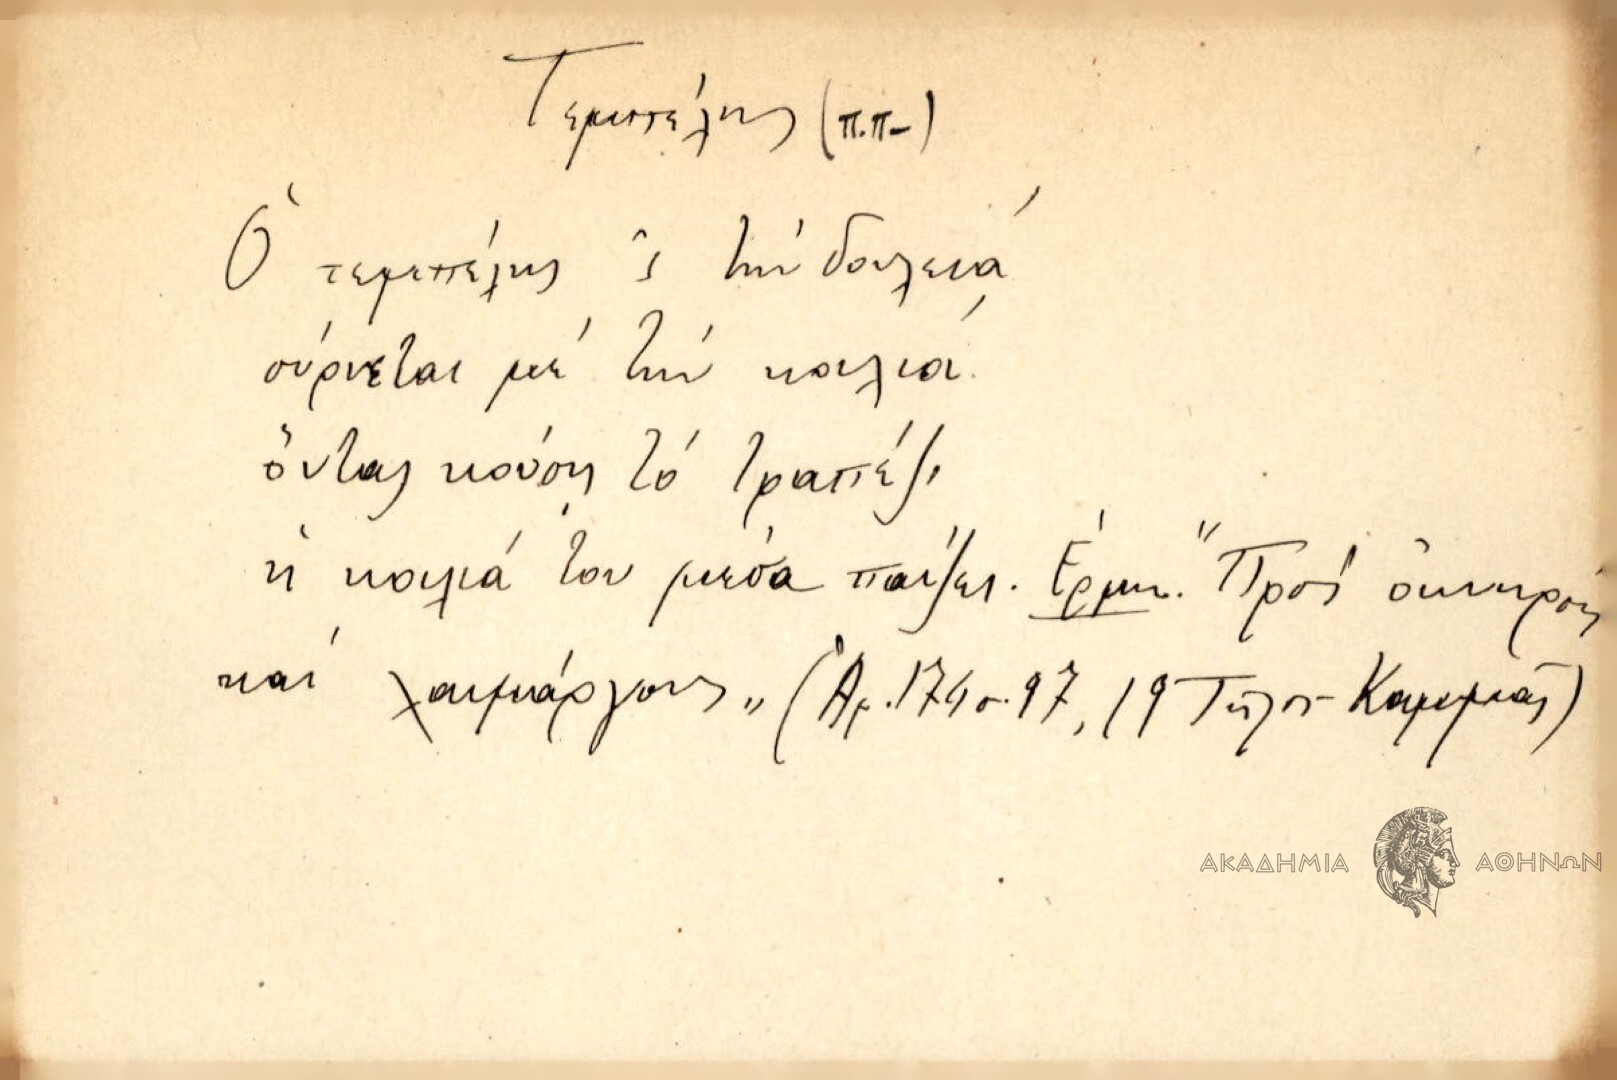 Τεμπέλης (π.π-)
Ὁ τεμπέλης ς τὴν δουλειά
σύρνεται μέ τήν κοιλιά.
ὄντας κούση τό τραπέζι
ἡ κοιλιά του μέσα παίζει. Ἑρμην. "Πρός ὀκνηρούς
καί λαιμάργους" (Ἀρ. 174 σ. 97, 19 Καμμᾶς)
ΑΚΑΔΗΜΙΑ ΑΘΗΝΩΝ